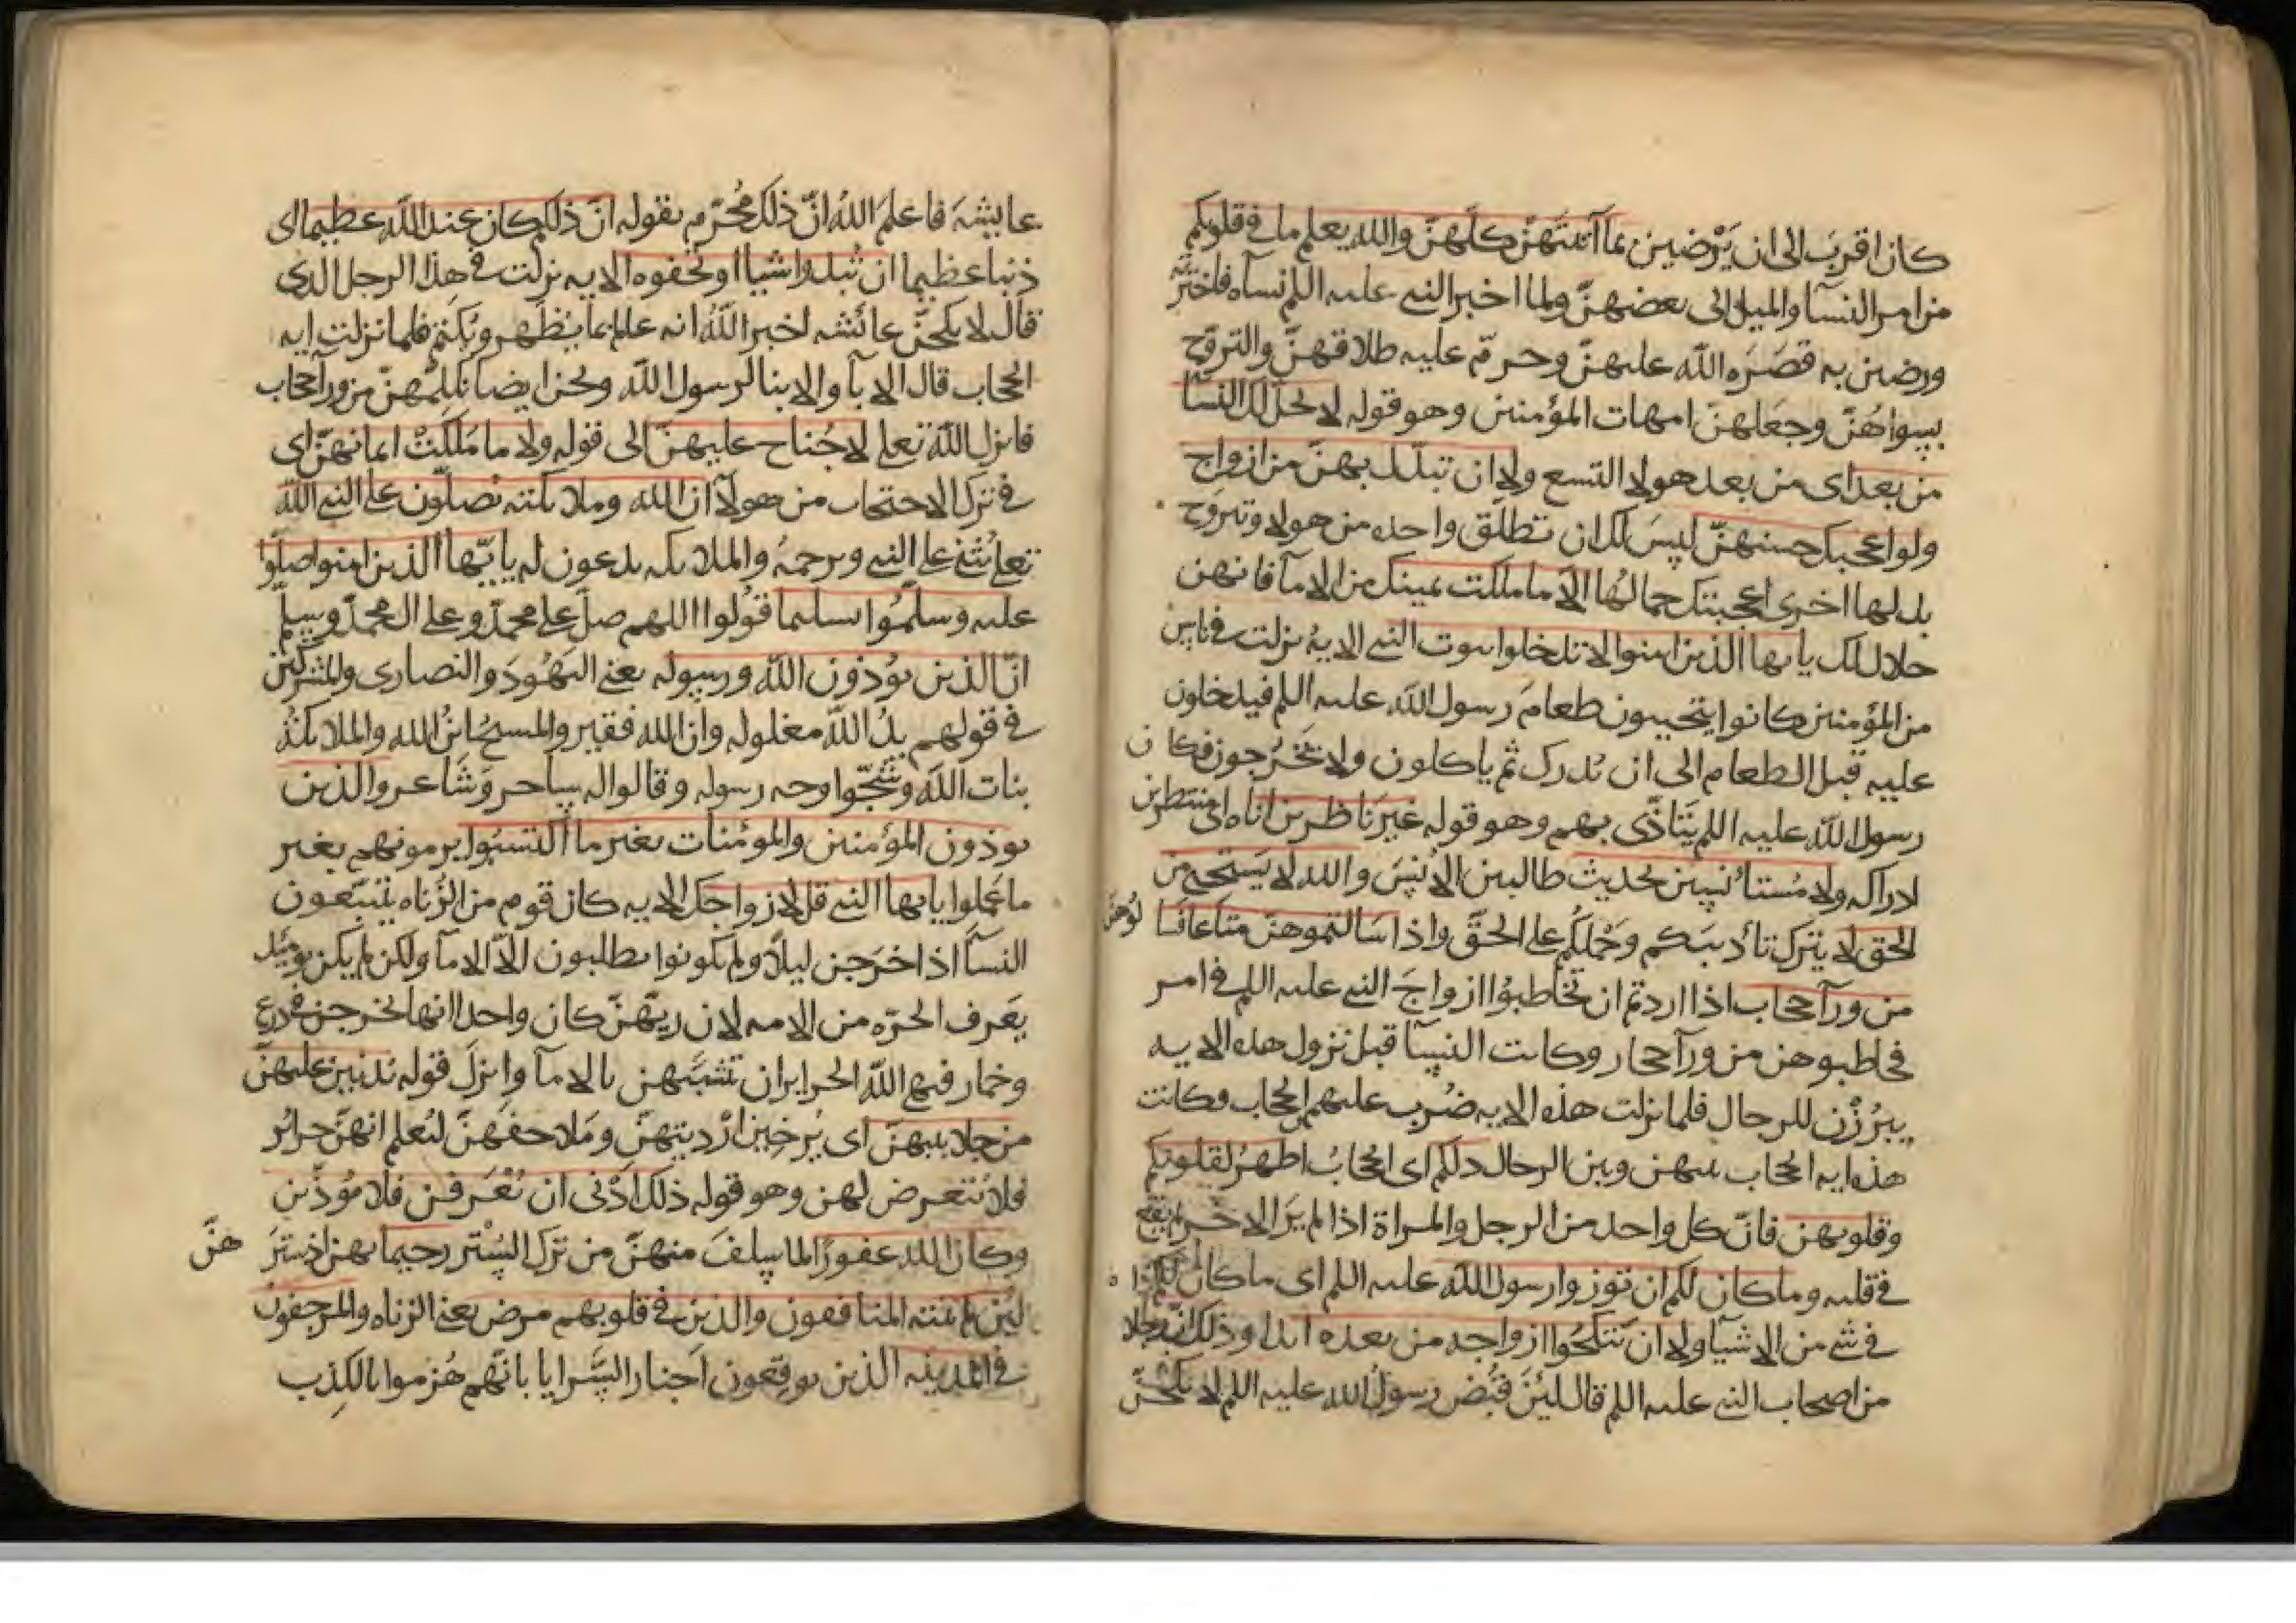 كان اقرب الى ان يرضين بما آتيتهن كلهن والله يعلم ما فى قلوبكم
من امر النسآ والميل الى بعضهن ولما اخبر النبى عليه اللم نسآه فاخترنه
ورضين به قصره الله عليهن وحرم عليه طلاقهن والتزوج
بسواهن وجعلهن امهات المؤمنين وهو قوله لا يحل لك النسآ
من بعد اى من بعد هولا التسع ولا ان تبدل بهن من ازواج
ولو اعجبك حسنهن ليس لك ان تطلق واحده من هولا وتتزوج
بدلها اخرى اعجبتك جمالها الا ما ملكت يمينك من الامآ فانهن
حلال لك يا ايها الذين امنوا لا تدخلوا بيوت النبى الايه نزلت فى ناس
من المؤمنين كانوا يتحينون طعام رسول الله عليه اللم فيدخلون
عليه قبل الطعام الى ان يدرك ثم ياكلون ولا يخرجون فكان
رسول الله عليه اللم يتاذى بهم وهو قوله غير ناظرين اناه اى منتظرين
ادراكه ولا مستانسين لحديث طالبين الانس والله لا يستحى من
الحق لا يترك تأديبكم وحملكم على الحق واذا سالتموهن متاعا فسالوهن
من ورآ حجاب اذا اردتم ان تخاطبوا ازواج النبى عليه اللم فى امر
فخاطبوهن من ورآ حجاب وكانت النسآ قبل نزول هذه الايه
يبرزن للرجال فلما نزلت هذه الايه ضرب عليهم الحجاب وكانت
هذه ايه الحجاب بينهن وبين الرجال ذلكم اى الحجاب اطهر لقلوبكم
وقلوبهن فان كل واحد من الرجل والمراة اذا لم ير الاخر لم يقع
فى قلبه وما كان لكم ان توذوا رسول الله عليه اللم اى ما كان لكم اذاه
فى شى من الاشيآ ولا ان تنكحوا ازواجه من بعده ابدا وذلك ان رجلا
من اصحاب النبى عليه اللم قال لئن قبض رسول الله عليه اللم لانكحن
عايشة فاعلم الله ان ذلك محرم بقوله ان ذلكم كان عند الله عظيما اى
ذنبا عظيما ان تبدوا شيا او تخفوه الايه نزلت فى هذا الرجل الذى
قال لانكحن عائشه اخبر الله انه عالم بما يظهر ويكتم فلما نزلت ايه
الحجاب قال الابآ والابنا لرسول الله ونحن ايضا نكلمهن من ورآ حجاب
فانزل الله تعلى لا جناح عليهن الى قوله ولا ما ملكت ايمانهن اى
فى ترك الاحتجاب من هولآ ان الله وملائكته يصلون على النبى الله
تعلى يثنى على النبى ويرحمه والملائكه يدعون له يا ايها الذين امنوا صلوا
عليه وسلموا تسليما قولوا اللهم صل على محمد وعلى ال محمد وسلم
ان الذين يوذون الله ورسوله يعنى اليهود والنصارى والمشركين
فى قولهم يد الله مغلوله وان الله فقير والمسيح ابن الله والملائكة
بنات الله وشجوا وجه رسوله وقالوا له ساحر وشاعر والذين
يوذون المؤمنين والمؤمنات بغير ما اكتسبوا يرمونهم بغير
ما عملوا يا ايها النبى قل لازواجك الايه كان قوم من الزناه يتبعون
النسآ اذا خرجن ليلا ولم يكونوا يطلبون الا الامآ ولكن لم يكن يومئذ
يعرف الحره من الامه لان زيهن كان واحدا انما يخرجن فى درع
وخمار فنهى الله الحراير ان تتشبهن بالامآ وانزل قوله يدنين عليهن
من جلابيبهن اى يرخين ارديتهن وملاحفهن ليعلم انهن حرائر
فلا يتعرض لهن وهو قوله ذلك ادنى ان يعرفن فلا يوذين
وكان الله غفورا لما سلف منهن من ترك الستر رحيما بهن اذ سترهن
لئن لم ينته المنافقون والذين فى قلوبهم مرض يعنى الزناه والمرجفون
فى المدينه الذين يوقعون اخبار السرايا بانهم هزموا بالكذب